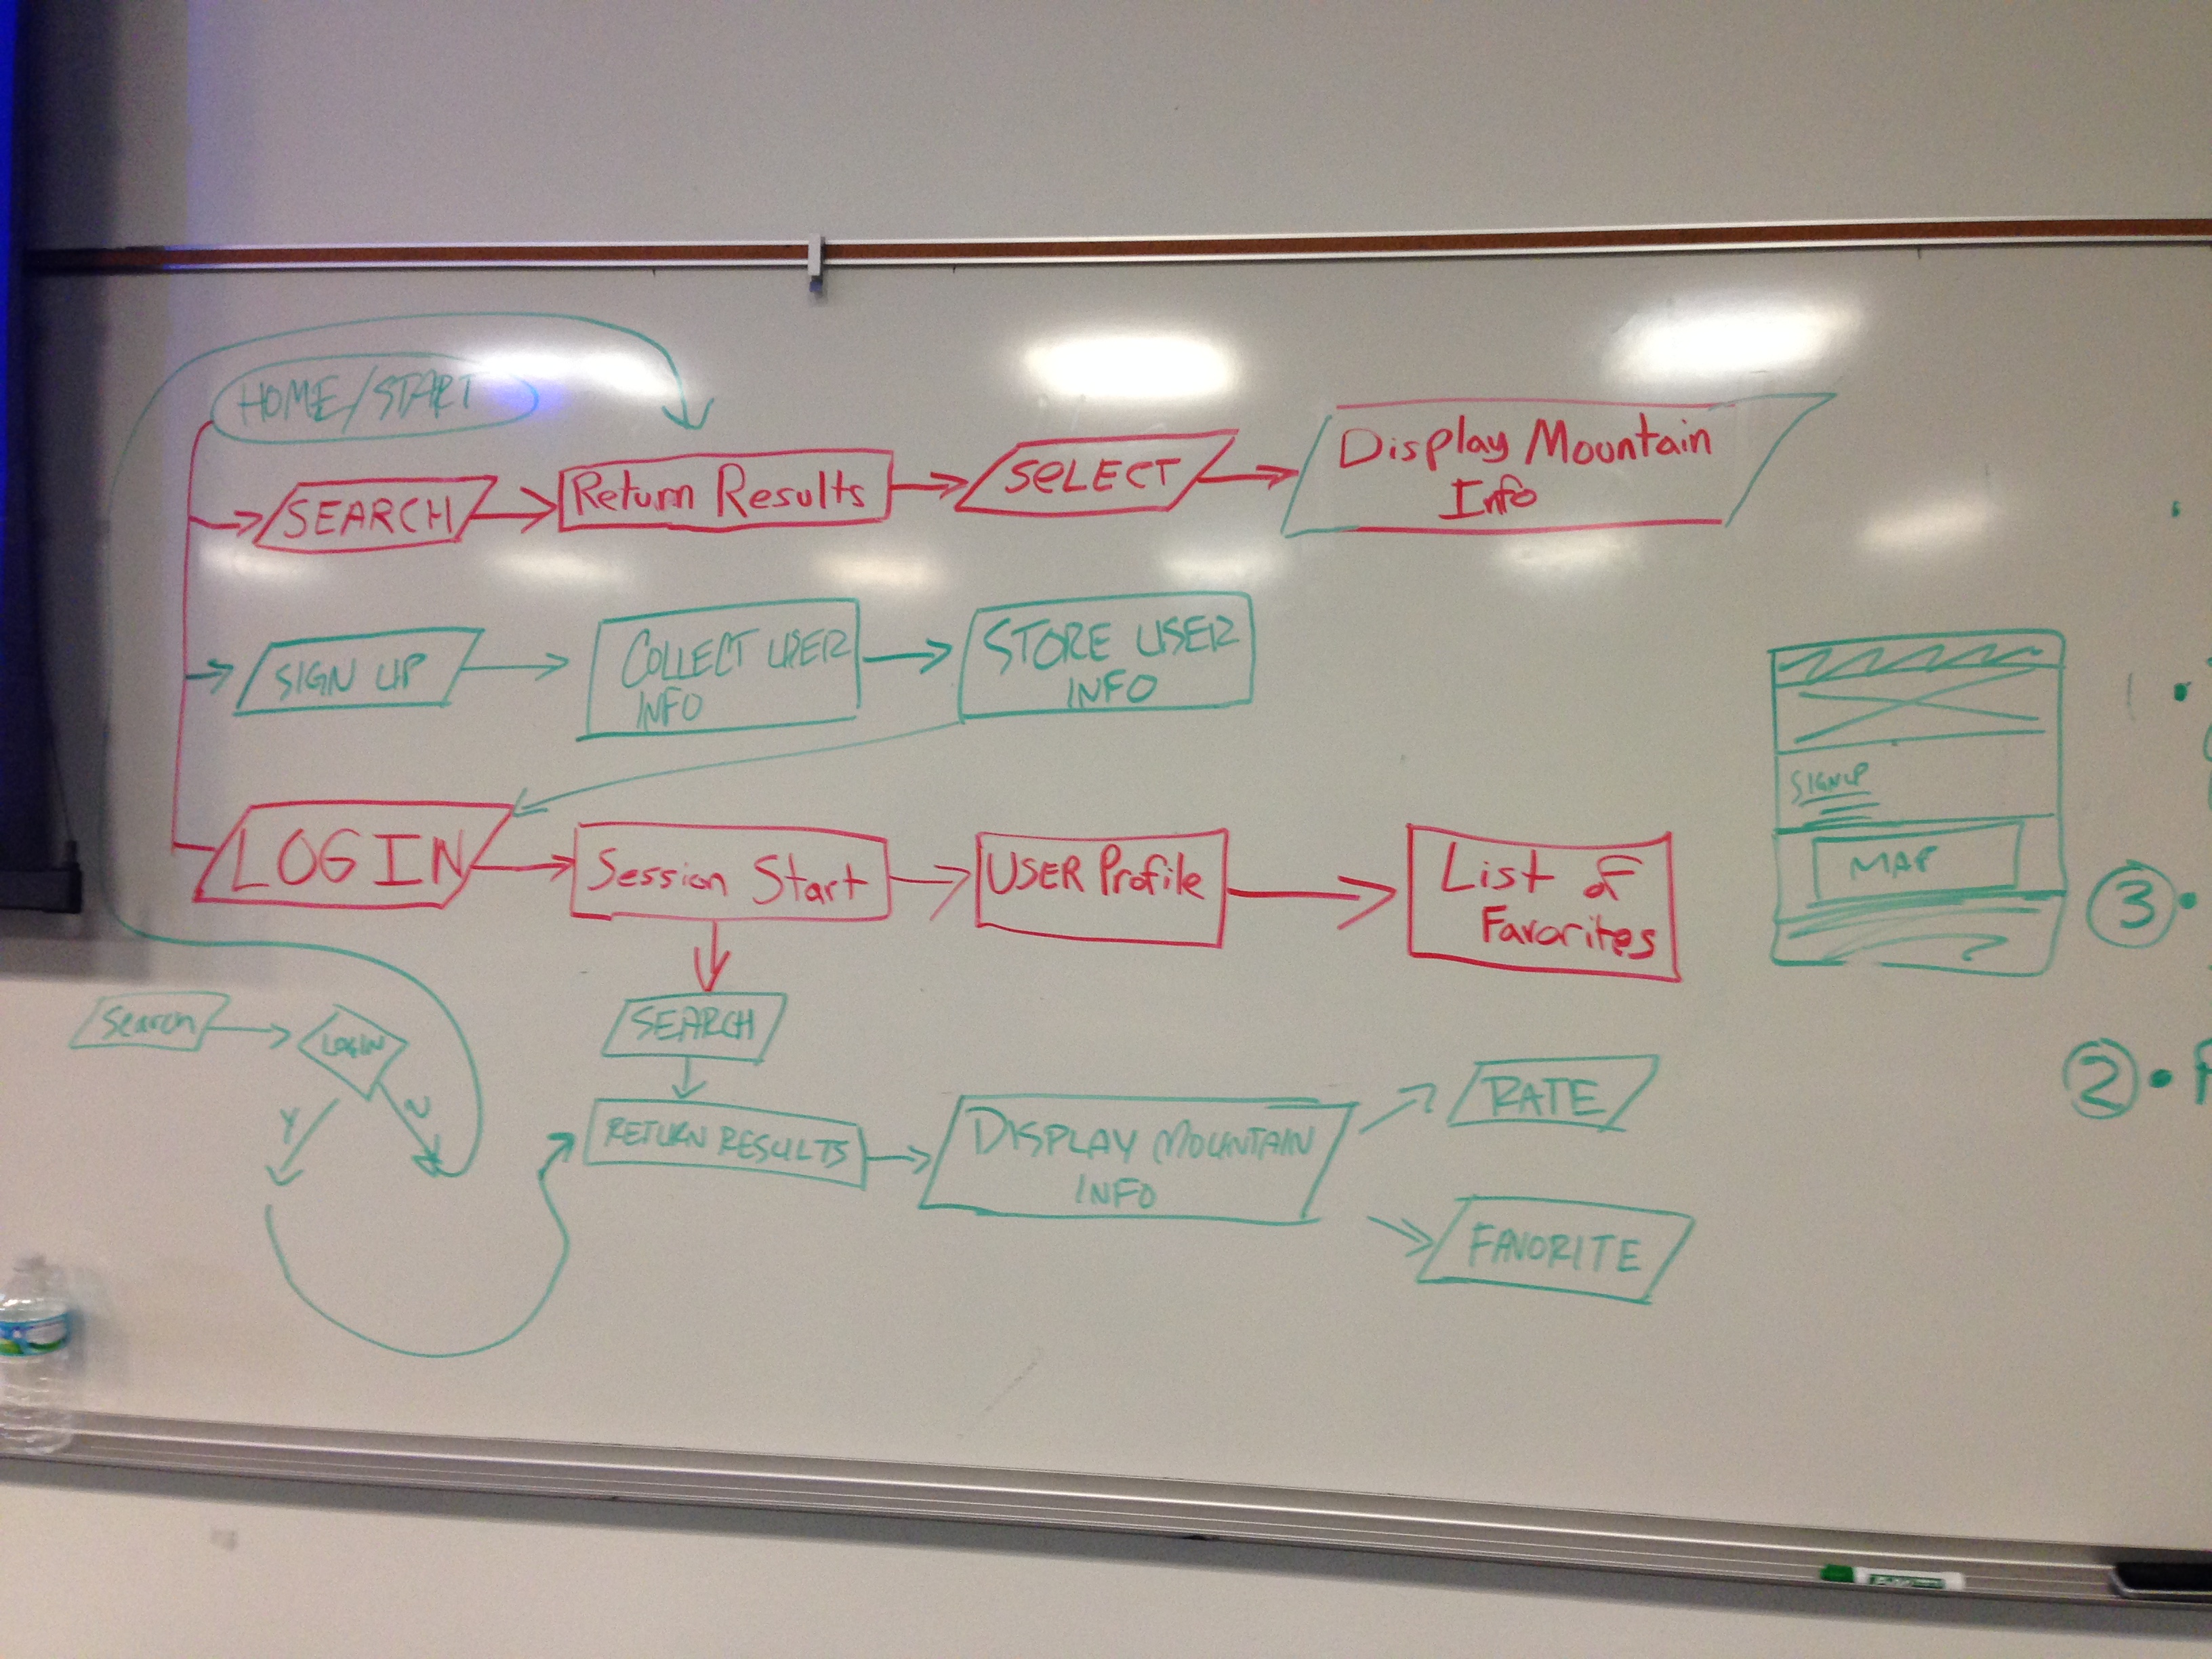 HOME/START
SEARCH
Return Results
SELECT
Display Mountain
Info
SIGN UP
COLLECT USER
INFO
STORE USER
INFO
LOGIN
Session Start
USER Profile
List of
Favorites
SIGN UP
MAP
3
Search
LOGIN
Y
N
SEARCH
RETURN RESULTS
DISPLAY MOUNTAIN
INFO
RATE
FAVORITE
2